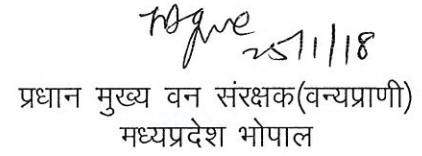 25/1/18
प्रधान मुख्य वन संरक्षक(वन्यप्राणी)
मध्यप्रदेश भोपाल